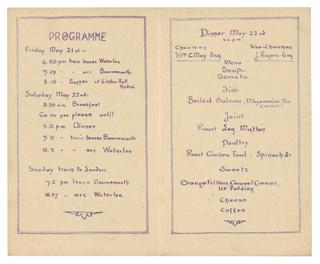 PROGRAMME
Friday May 21st :-
4.50 pm train leaves Waterloo
7.29 " - arr Bournemouth.
8.15 - Supper at Linden Hall
Hydro
Saturday May 22nd:-
8.30 am Breakfast
Go as you please until
5.0 p.m. Dinner
7.11 - train leaves Bournemouth
- arr Waterloo
Sunday train to London
7.2 pm leave Bournemouth
arr Waterloo.
Dinner May 22nd
Chairman
Vice-Chairman
C May Esq
J Rogers Esq
Menu
Soup-
Tomato
Fish
Boiled Salmon, Mayonnaise
Joint
Roast Leg Mutton
Poultry
Roast Guinea Fowl, Spinach
Sweets
Orange Fritters, Caramel Creams,
Ice Pudding
Cheese
Coffee